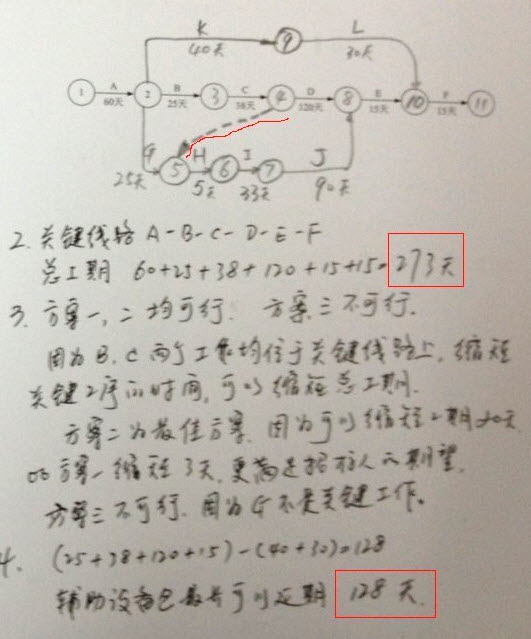 K L
40天 9 30天
1 A 2 B 3 C 4 D 8 E 10 F 11
60天 25天 38天 120天 15天 15天
G 5 H 6 I 7 J
25天 5天 33天 90天
2. 关键线路 A-B-C-D-E-F
总工期 60+25+38+120+15+15=273天
3. 方案一,二均可行. 方案三不可行.
因为B、C两个工作均位于关键线路上,缩短
关键工序的时间,可以缩短总工期.
方案二为最佳方案.因为可以缩短工期
方案一缩短3天,更满足招标人的期望.
方案三不可行.因为G不是关键工作。
4. (25+38+120+15)-(40+30)=128
辅助设备包最长可以延期 128天.